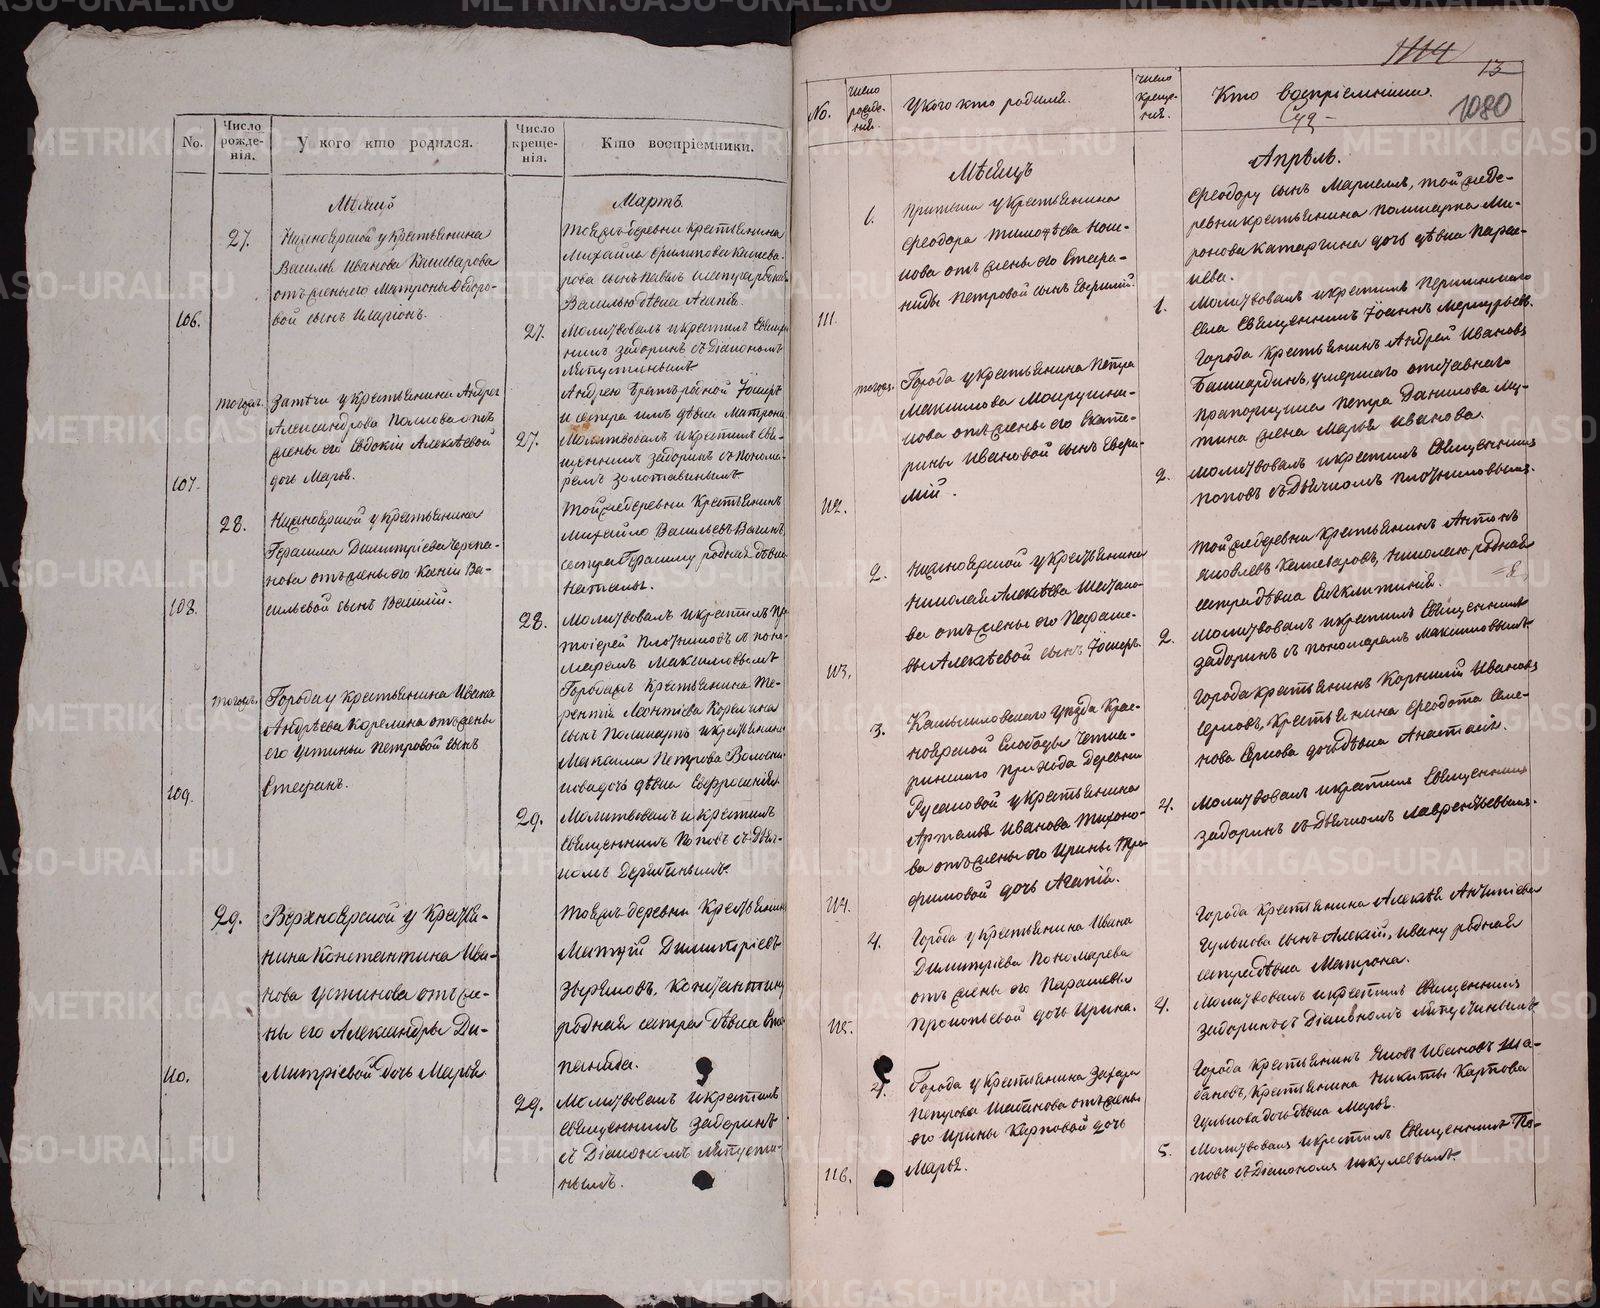 No.
Число рожде-
нія.
У кого кто родился.
Число креще-
нія.
Кто воспріемники.
Мѣсяцъ
Мартъ
106.
27.
Нижноярской у крестьянина
Василья Иванова Кашеварова
отъ жены его Матроны Ѳедоро-
вой сынъ Иларіонъ.
27.
Тояжъ деревни крестьянина
Михайла Филиппова Кашева-
рова сынъ Павелъ и сестра родная
Василью дѣвка Агапія.
Молитвовалъ и крестилъ Священ-
никъ Задоринъ съ Діакономъ
107.
тогожъ.
Затечи у крестьянина Андрея
Александрова Попова отъ
жены его Евдокіи Алексѣевой
дочь Марья.
27.
Андрею братъ родной Іосифъ
и сестра имъ дѣвка Матрона
Молитвовалъ и крестилъ Свя-
щенникъ Задоринъ съ Понома-
ремъ Золотавинымъ.
108.
28.
Нижноярской у крестьянина
Герасима Димитріева Черепа-
нова отъ жены его Ксеніи Ва-
сильевой сынъ Василій.
28.
Тойже деревни крестьянинъ
Михайло Васильевъ
сестра Герасиму родная дѣвка
Наталья.
Молитвовалъ и крестилъ Про-
тоіерей Плотниковъ съ поно-
маремъ Максимовымъ.
109.
тогожъ.
Города у крестьянина Ивана
Андрѣева Корелина отъ жены
его Устиньи Петровой сынъ
Стефанъ.
29.
крестьянина Те-
рентія Леонтіева Корелина
сынъ Поликарпъ и крестьянина
Максима Петрова
дочь дѣвка Евфросинія
Молитвовалъ и крестилъ
Священникъ Поповъ съ Дьяч-
комъ
110.
29.
Верхноярской у крестья-
нина Константина Ива-
нова Устинова отъ же-
ны его Александры Ди-
митріевой дочь Марья
29.
Тояжъ деревни крестьянинъ
Матѳій Димитріевъ
Зыряновъ, Константину
родная сестра дѣвка Сте-
панида.
Молитвовалъ и крестилъ
Священникъ Задоринъ
съ Діакономъ
1114
13
1080
No.
Число рожде-
нія.
У кого кто родился.
Число креще-
нія.
Кто воспріемники.
Мѣсяцъ
Апрѣль.
111.
1.
у крестьянина
Ѳеодора Тимоѳѣева
отъ жены его Стефа-
ниды Петровой сынъ Евфимій.
1.
Ѳеодору сынъ тойже де-
ревни крестьянина Поликарпа Ми-
ронова Катаргина дочь дѣвка Параск-
Молитвовалъ и крестилъ
села Священникъ Іоаннъ Меркурьевъ.
112.
тогожъ.
Города у крестьянина Петра
Максимова
отъ жены его Екате-
рины Ивановой сынъ Евфи-
мій.
2.
Города крестьянинъ Андрей Ивановъ
Башкардинъ, умершаго отставнаго
прапорщика Петра Данилова
жена Марья Иванова.
Молитвовалъ и крестилъ Священникъ
Поповъ съ Дьячкомъ Плотниковымъ.
113.
2.
Нижноярской у крестьянина
Николая Алексѣева
отъ жены его Параске-
вы Алексѣевой сынъ Іосифъ.
2.
Тойже деревни крестьянинъ Антонъ
Яковлевъ Кашеваровъ, Николаю родная
сестра дѣвка Сvнклитикія.
Молитвовалъ и крестилъ Священникъ
Задоринъ съ пономаремъ Максимовымъ.
114.
3.
Камышловскаго уѣзда Крас-
ноярской Слободы
прихода деревни
Русаковой у крестьянина
Артемья Иванова Тихоно-
ва отъ жены его Ирины Тро-
фимовой дочь Агапія.
4.
Города крестьянинъ Корнилій Ивановъ
Серковъ, крестьянина Ѳеодота Семе-
нова Серкова дочь дѣвка Анастасія.
Молитвовалъ и крестилъ Священникъ
Задоринъ съ Дьячкомъ Лаврентьевымъ.
115.
4.
Города у крестьянина Ивана
Димитріева Пономарева
отъ жены его Параскевы
Прокопьевой дочь Ирина.
4.
Города крестьянина Алексѣя Антипіева
Гулькова сынъ Алексій, Ивану родная
сестра дѣвка Матрона.
Молитвовалъ и крестилъ Священникъ
Задоринъ съ Діакономъ
116.
4.
Города у крестьянина Захара
Петрова Шабанова отъ жены
его Ирины Карповой дочь
Марья.
5.
Города крестьянинъ Яковъ Ивановъ Ша-
бановъ, крестьянина Никиты Карпова
Гулькова дочь дѣвка Марья.
Молитвовалъ и крестилъ Священникъ По-
повъ съ Діакономъ
METRIKI.GASO-URAL.RU